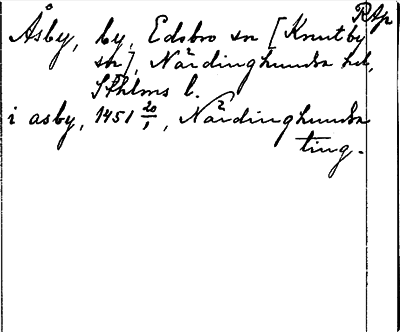 Rtp
Åsby, by, Edsbro sn [Knutby
sn], Närdinghundra hd,
Sthlms l.
i asby, 1451 20/1, Närdinghundra
ting.